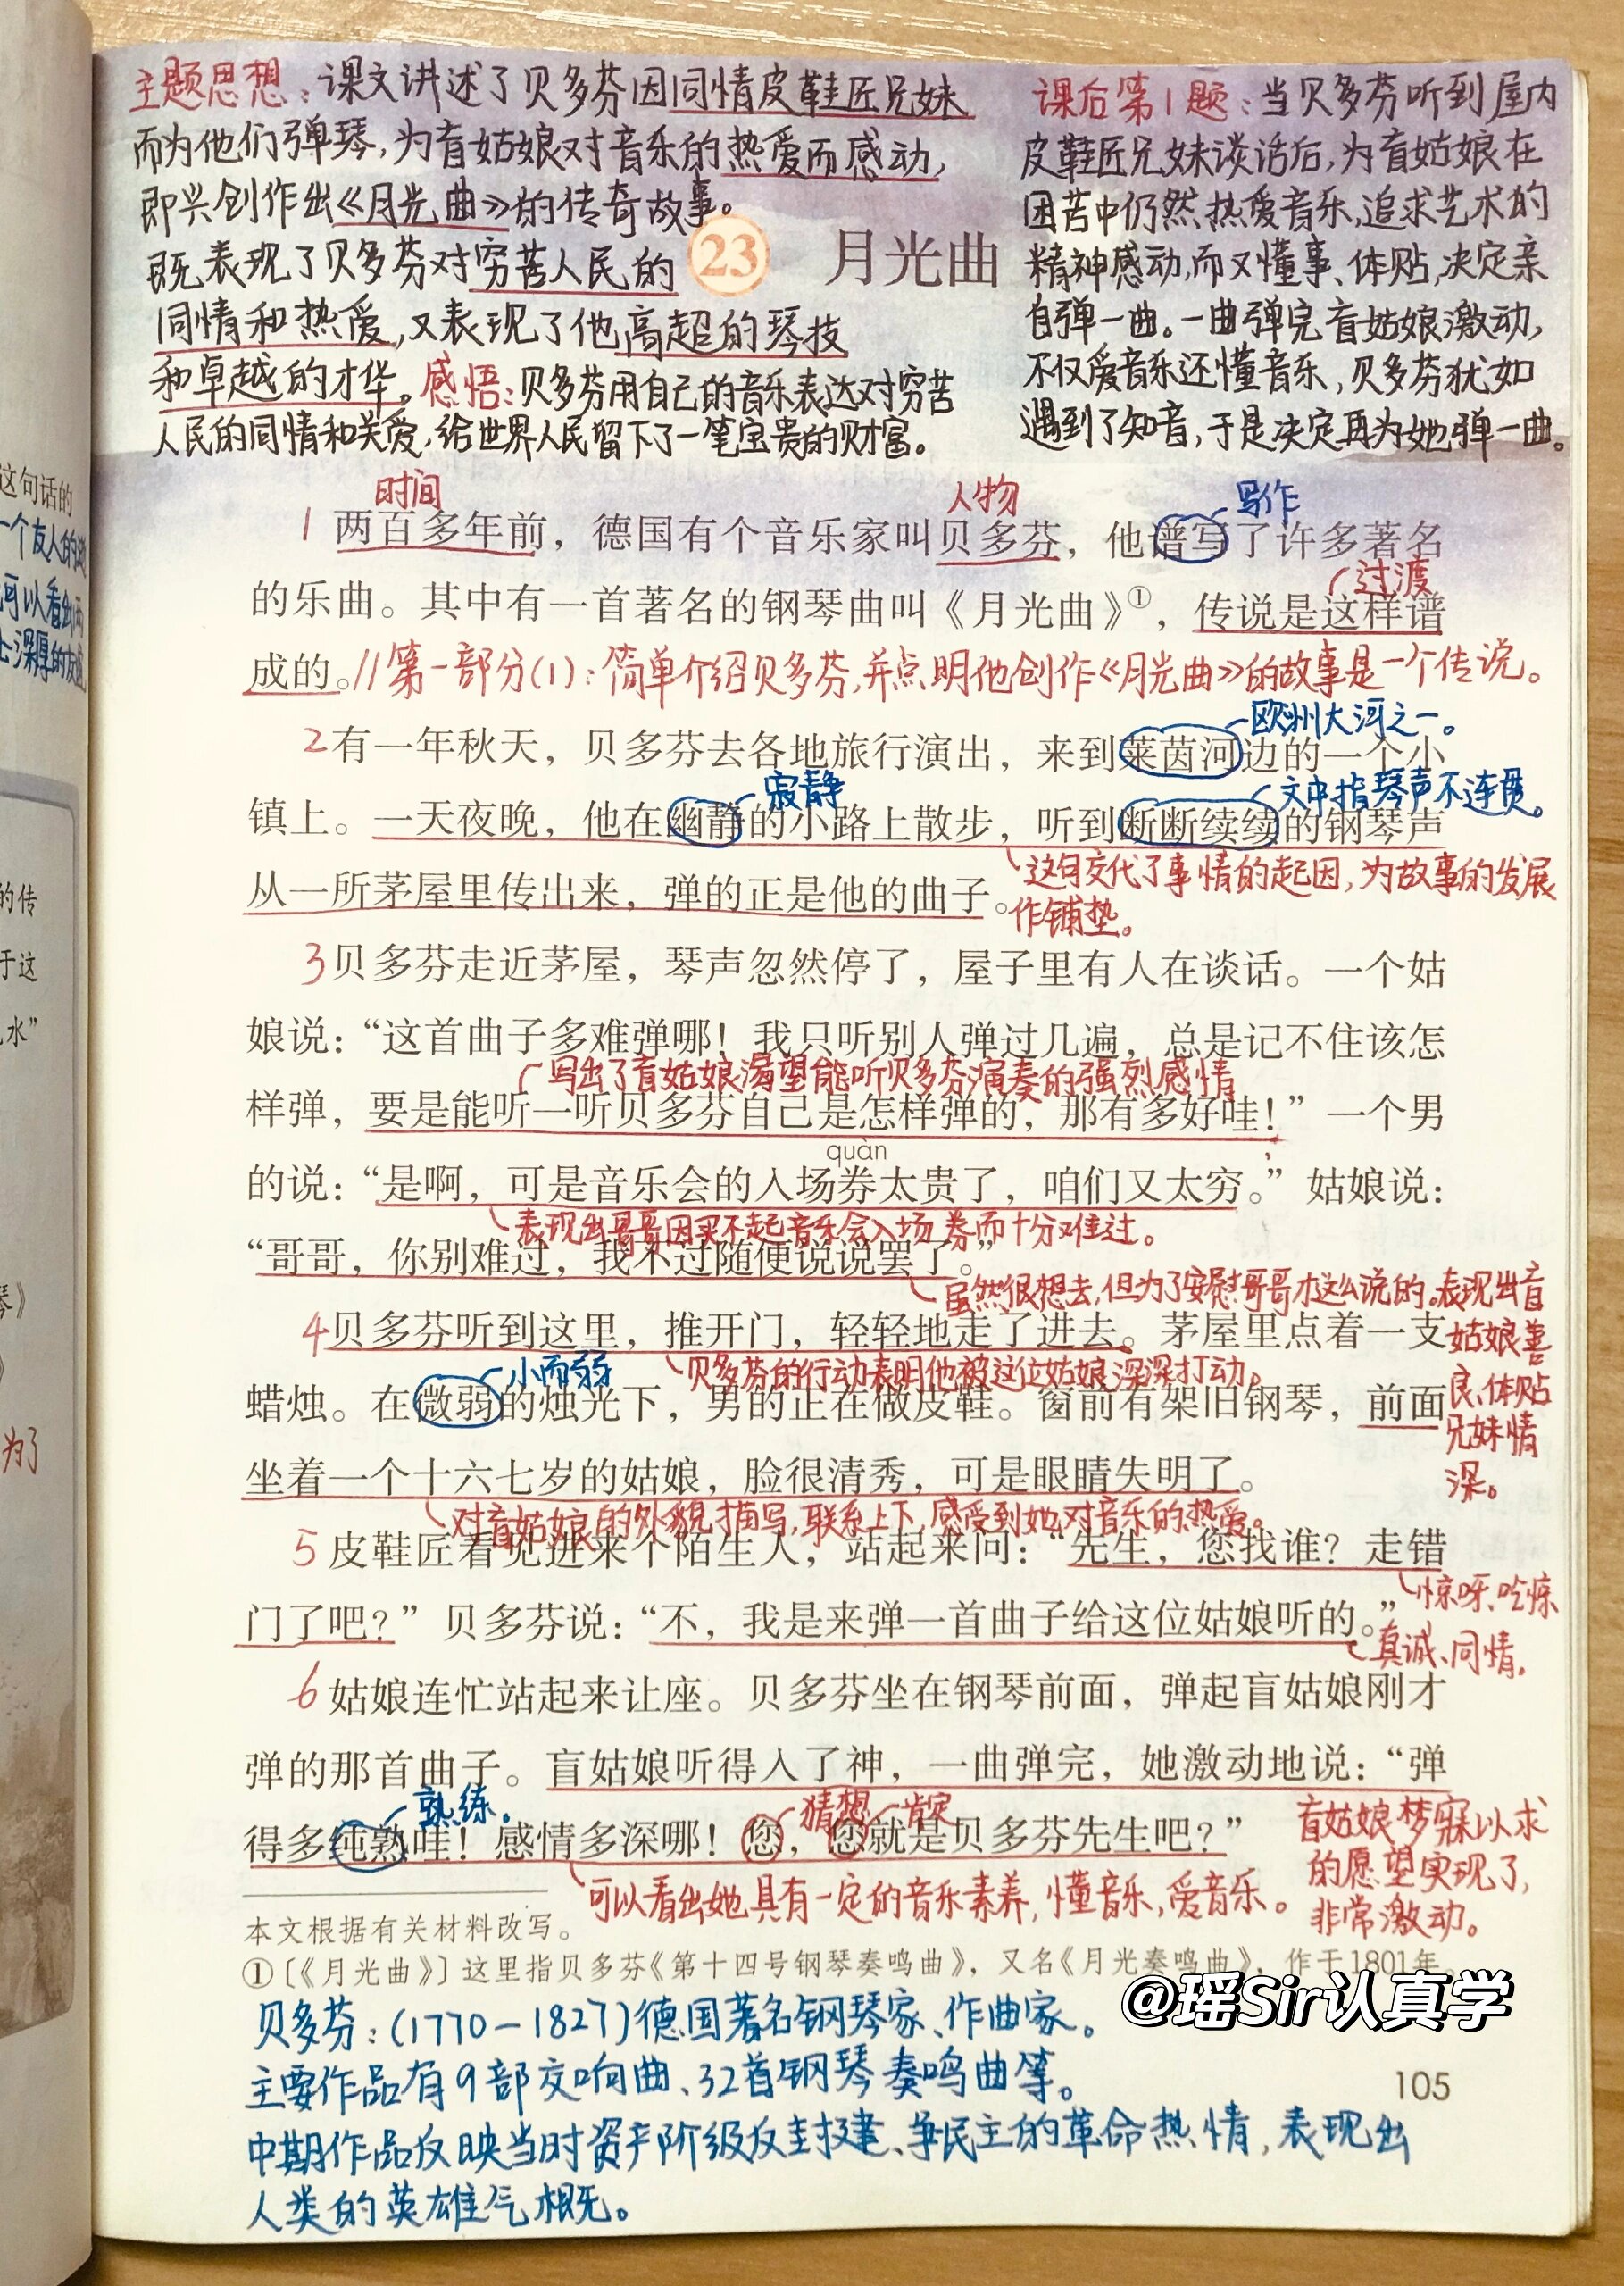 主题思想：课文讲述了贝多芬因同情皮鞋匠兄妹
而为他们弹琴，为盲姑娘对音乐的热爱而感动，
即兴创作出《月光曲》的传奇故事。
既表现了贝多芬对穷苦人民的
同情和热爱，又表现了他高超的琴技
和卓越的才华。感悟：贝多芬用自己的音乐表达对穷苦
人民的同情和关爱，给世界人民留下了一笔宝贵的财富。
课后第1题：当贝多芬听到屋内
皮鞋匠兄妹谈话后，为盲姑娘在
困苦中仍然热爱音乐，追求艺术的
精神感动，而又懂事、体贴，决定亲
自弹一曲。一曲弹完盲姑娘激动，
不仅爱音乐还懂音乐，贝多芬犹如
遇到了知音，于是决定再为她弹一曲。
23 月光曲
时间 人物 写作
1 两百多年前，德国有个音乐家叫贝多芬，他谱写了许多著名
过渡
的乐曲。其中有一首著名的钢琴曲叫《月光曲》①，传说是这样谱
成的。//第一部分(1)：简单介绍贝多芬，并点明他创作《月光曲》的故事是一个传说。
欧洲大河之一。
2有一年秋天，贝多芬去各地旅行演出，来到莱茵河边的一个小
寂静 文中指琴声不连贯。
镇上。一天夜晚，他在幽静的小路上散步，听到断断续续的钢琴声
这句交代了事情的起因，为故事的发展
从一所茅屋里传出来，弹的正是他的曲子。
作铺垫。
3贝多芬走近茅屋，琴声忽然停了，屋子里有人在谈话。一个姑
娘说：“这首曲子多难弹哪！我只听别人弹过几遍，总是记不住该怎
写出了盲姑娘渴望能听贝多芬演奏的强烈感情
样弹，要是能听一听贝多芬自己是怎样弹的，那有多好哇！”一个男
quàn
的说：“是啊，可是音乐会的入场券太贵了，咱们又太穷。”姑娘说：
表现出哥哥因买不起音乐会入场券而十分难过。
“哥哥，你别难过，我不过随便说说罢了。”
虽然很想去，但为了安慰哥哥才这么说的。表现出盲
姑娘善
良、体贴
兄妹情
深。
4贝多芬听到这里，推开门，轻轻地走了进去。茅屋里点着一支
小而弱 贝多芬的行动表明他被这位姑娘深深打动。
蜡烛。在微弱的烛光下，男的正在做皮鞋。窗前有架旧钢琴，前面
坐着一个十六七岁的姑娘，脸很清秀，可是眼睛失明了。
对盲姑娘的外貌描写，联系上下，感受到她对音乐的热爱。
5 皮鞋匠看见进来个陌生人，站起来问：“先生，您找谁？走错
惊呀、吃惊
门了吧？”贝多芬说：“不，我是来弹一首曲子给这位姑娘听的。”
真诚、同情。
6 姑娘连忙站起来让座。贝多芬坐在钢琴前面，弹起盲姑娘刚才
弹的那首曲子。盲姑娘听得入了神，一曲弹完，她激动地说：“弹
熟练。 猜想 肯定
得多纯熟哇！感情多深哪！您，您就是贝多芬先生吧？”
盲姑娘梦寐以求
的愿望实现了，
非常激动。
可以看出她具有一定的音乐素养，懂音乐，爱音乐。
本文根据有关材料改写。
①〔《月光曲》〕这里指贝多芬《第十四号钢琴奏鸣曲》，又名《月光奏鸣曲》，作于1801年。
@瑶Sir认真学
贝多芬：(1770—1827)德国著名钢琴家、作曲家。
主要作品有9部交响曲、32首钢琴奏鸣曲等。
105
中期作品反映当时资产阶级反封建、争民主的革命热情，表现出
人类的英雄气概。
这句话的
一个友人的
可以看出
深厚的友
的传
于这
水”
琴》
》
为了